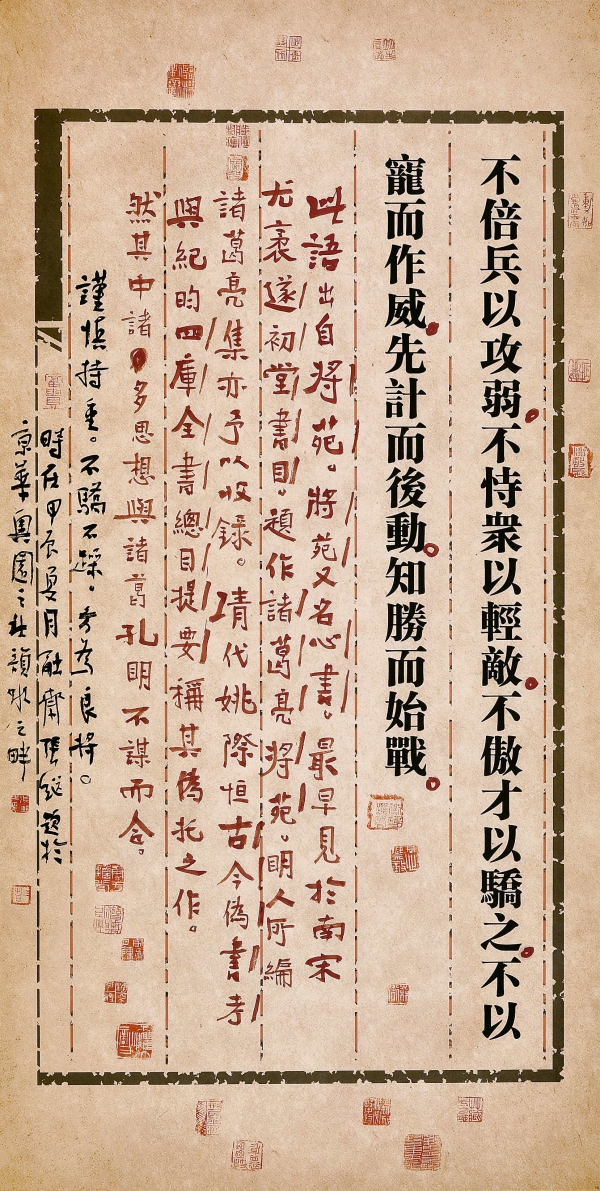 不倍兵以攻弱。不恃衆以輕敵。不傲才以驕之。不以
寵而作威。先計而後動。知勝而始戰。
此語出自将苑。将苑又名心書。最早見於南宋
尤袤遂初堂書目。題作諸葛亮将苑。明人所編
諸葛亮集亦予以收録。清代姚際恒古今僞書考
與紀昀四庫全書總目提要稱其僞托之作。
然其中諸多思想與諸葛孔明不謀而合。
謹慎持重。不驕不躁。方為良将。
時在甲辰夏月融齋張継題於
京華奥園之北韻水之畔